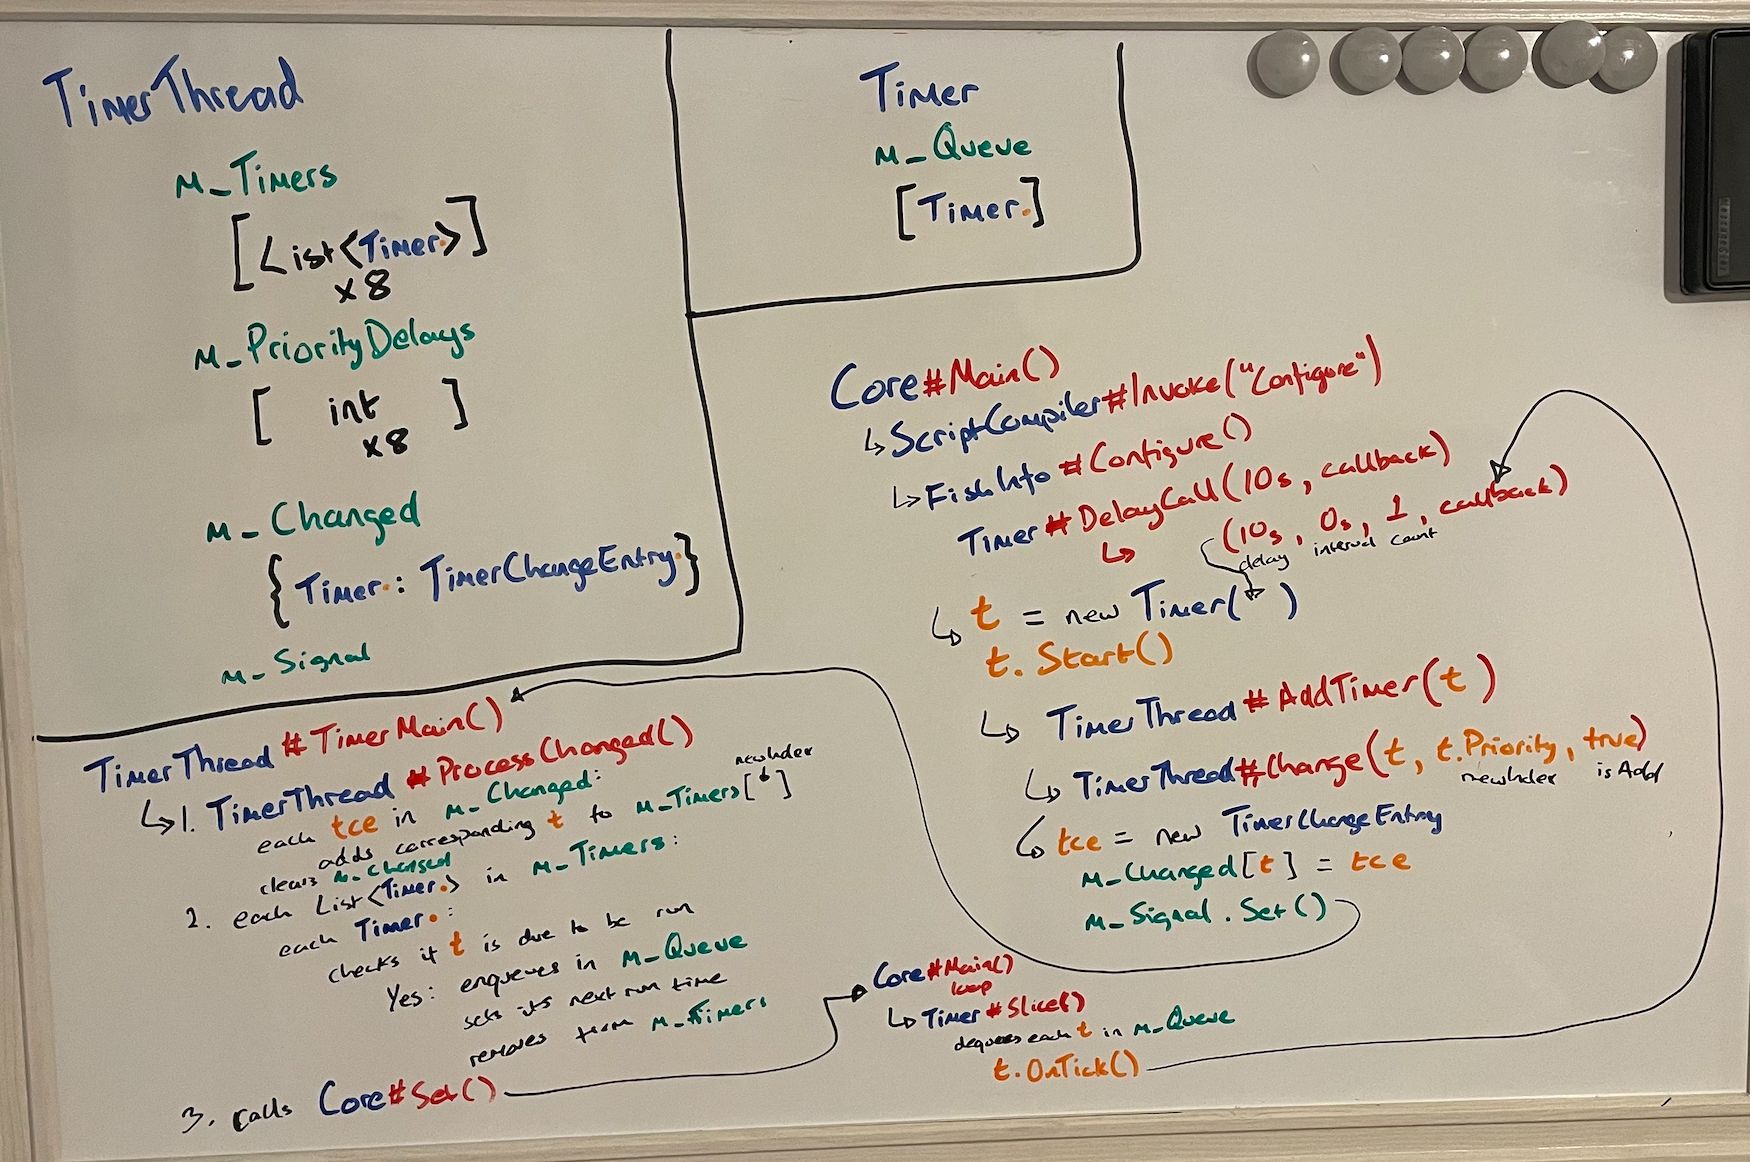 TimerThread
m_Timers
[List<Timer·>]
x8
m_PriorityDelays
[ int ]
x8
m_Changed
{Timer·: TimerChangeEntry·}
m_Signal
Timer
m_Queue
[Timer·]
Core#Main()
↳ScriptCompiler#Invoke("Configure")
↳FishInfo#Configure()
Timer#DelayCall(10s, callback)
↳ (10s, 0s, 1, callback)
delay interval count
↳ t = new Timer( )
t.Start()
↳ TimerThread#AddTimer(t)
↳ TimerThread#Change(t, t.Priority, true)
newIndex isAdd
↳ tce = new TimerChangeEntry
m_Changed[t] = tce
m_Signal.Set()
TimerThread#TimerMain()
↳1. TimerThread#ProcessChanged()
each tce in m_Changed:
newIndex
adds corresponding t to m_Timers[ ]
clears m_Changed
2. each List<Timer·> in m_Timers:
each Timer·:
checks if t is due to be run
Yes: enqueues in m_Queue
sets its next run time
removes from m_Timers
3. calls Core#Set()
Core#Main()
loop
↳Timer#Slice()
dequeues each t in m_Queue
t.OnTick()